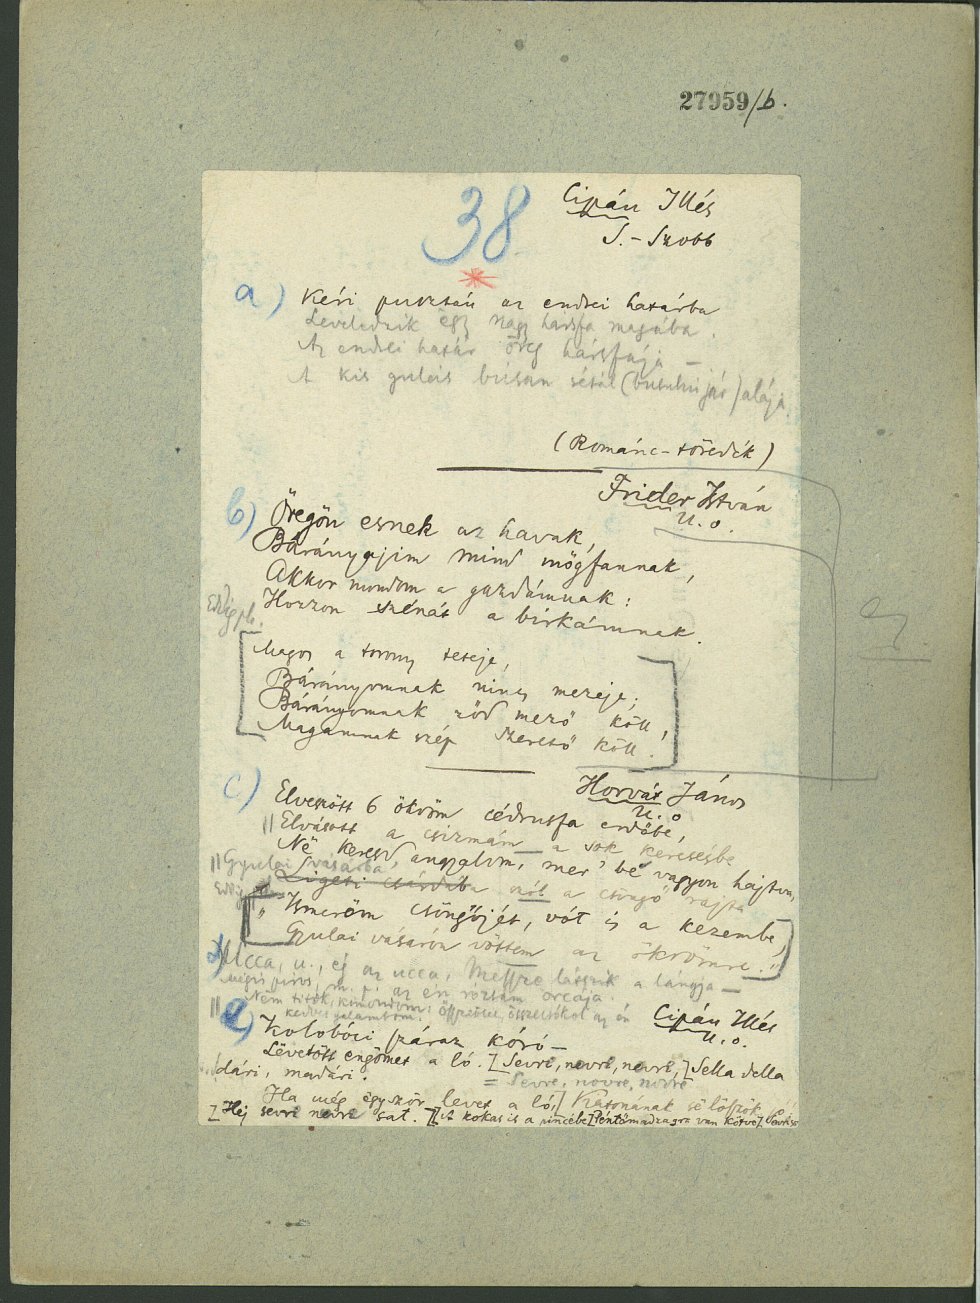 27959/b.
38
Cipán Illés
S.-Szobb
a) Kéri pusztán az endrei határba
Leveledzik egy nagy hársfa magába.
Az endrei határ öreg hársfája —
A kis gulás búsan sétál (busulni jár) alája.
(Románc-töredék)
Frider István
U. o.
b) Öregön esnek az havak,
Bárányajim mind mögfannak,
Akkor mondom a gazdámnak:
Hozzon szénát a birkámnak.
Magos a torony teteje,
Bárányomnak nincs mezeje;
Bárányomnak ződ mező köll,
Magamnak szép szerető köll.
Horvát János
U. o
c) Elveszött 6 ökröm cédrusfa erdőbe,
Elvásott a csizmám a sok keresésbe
Nē keresd, angyalom, mer' bē vagyon hajtva,
Gyulai vásárba
szól a csöngő rajta
„Ismeröm csöngőjét, vót is a kezembe,
Gyulai vásárón vöttem az ökrömre."
d) Ucca, u., ég az ucca, Messze látszik a lángja —
Mégis piros, m. p. az én rózsám orcája.
Nem titok, kimondom:
kedves galambom:
Cipán Illés
U. o.
e) Kolobóci száraz kóró —
Lëvetött engömet a ló. [Sevre, nevre, nevre,] Sella della
dári, madári.
= Sevre, novre, novre
Ha még égyször levet a ló,] Katonának
[Hej sevre nevre sat. [A kokas is a pincébe] Péntömadzagra van kötve].